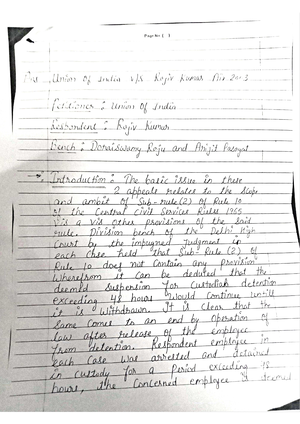 Page No: 1
Union of India v/s Rajiv Kumar Air 2003
Petitioner : Union of India
Respondent : Rajiv Kumar
Bench : Doraiswamy Raju and Arijit Pasayat
Introduction : The basic issue in these
2 appeals relates to the scope
and ambit of Sub-rule (2) of Rule 10
of the Central Civil Services Rules 1965
vis a vis other provisions of the said
rule. Division bench of the Delhi High
Court by the impugned judgment in
each case held that Sub-Rule (2) of
Rule 10 does not contain any provision
wherefrom it can be deduced that the
deemed suspension for custodian detention
exceeding 48 hours would continue untill
it is Withdrawn. It is clear that the
same comes to an end by operation of
law after release of the employee
from detention. Respondent employee in
each case was arrested and detained
in custody for a Period exceeding 48
hours, the Concerned employee is deemed